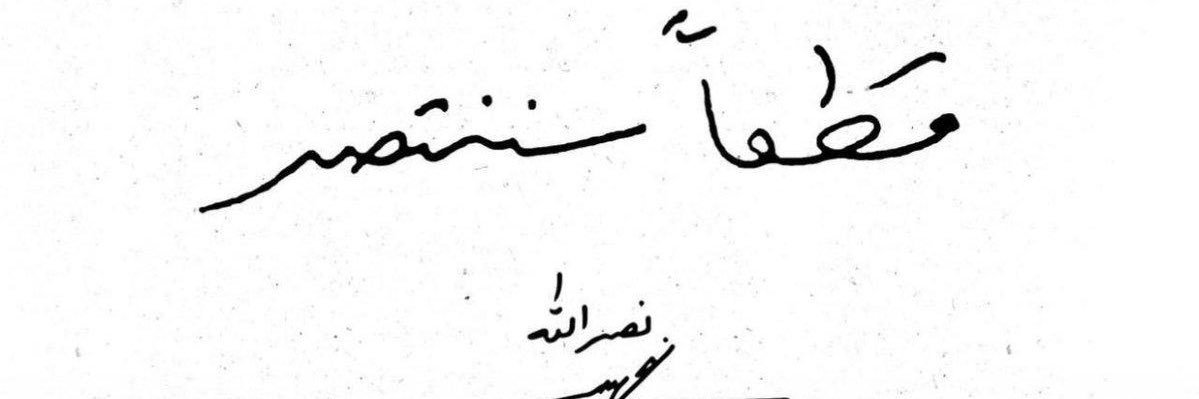 قطعاً سننتصر
نصر الله